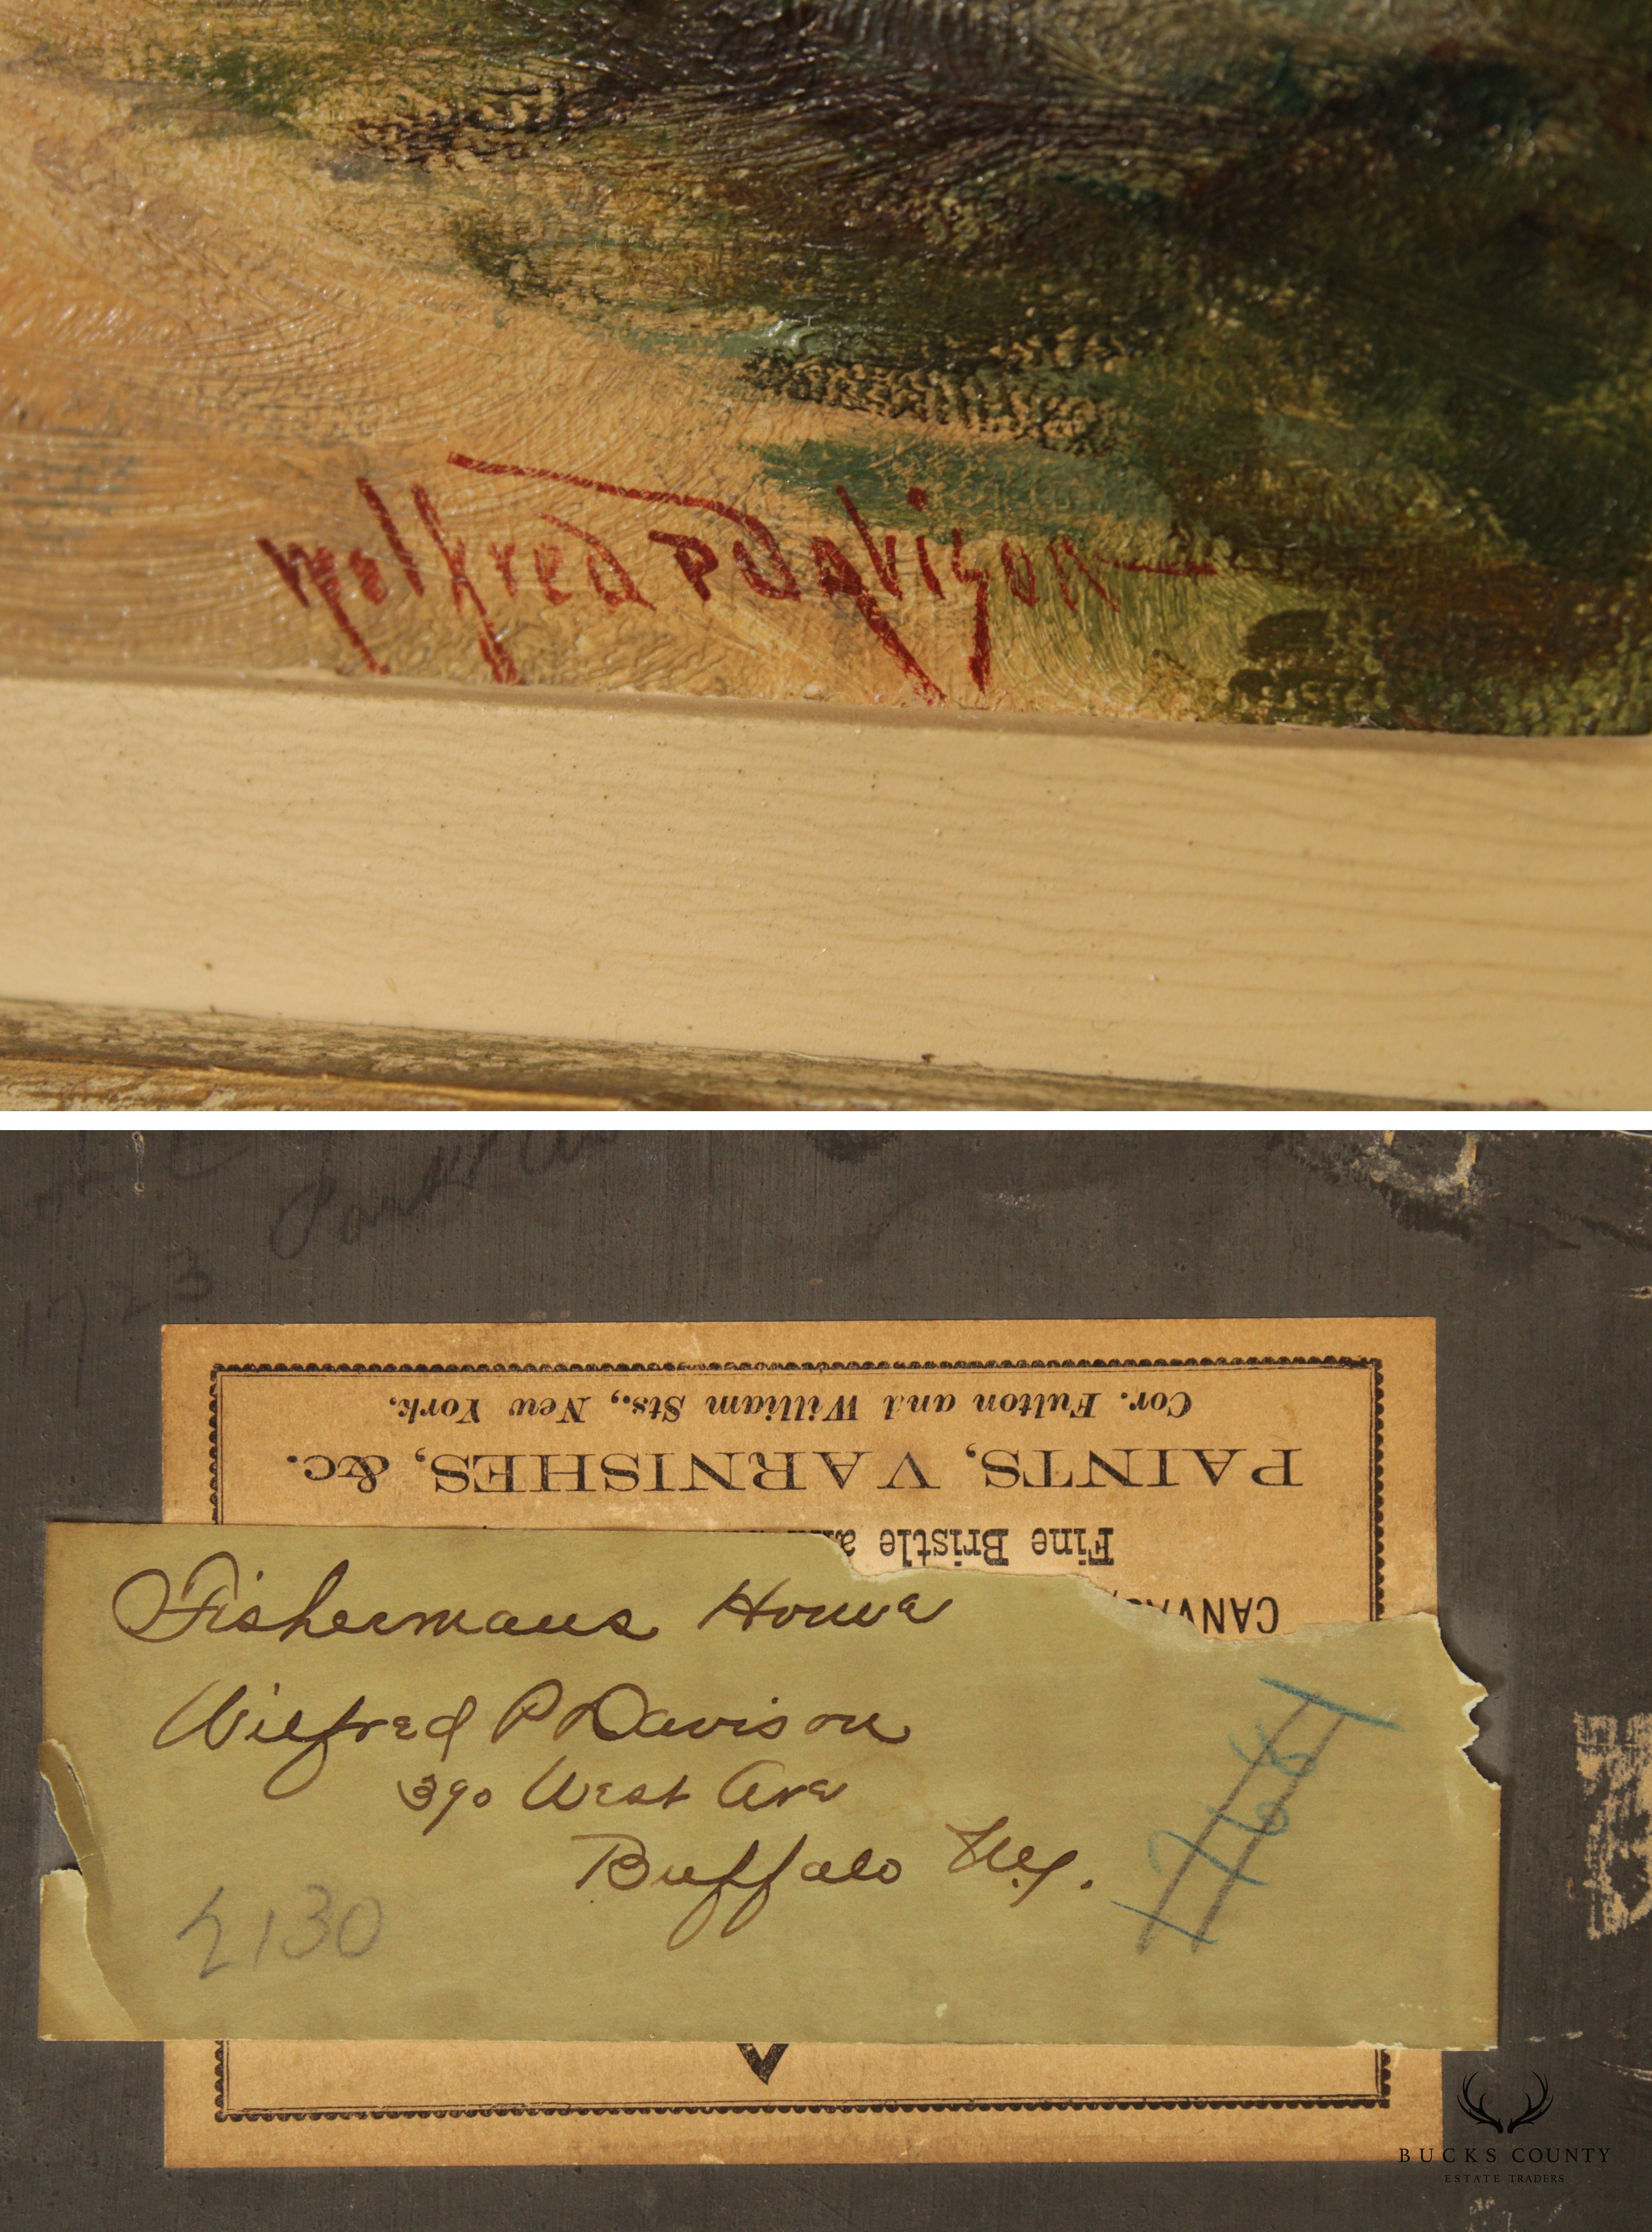 Wilfred P Davison
1923
Cor. Fulton and William Sts., New York.
PAINTS, VARNISHES, &c.
Fine Bristle
Fishermans Home
Wilfred P Davison
390 West Ave
Buffalo N.y.
2130
BUCKS COUNTY
ESTATE TRADERS